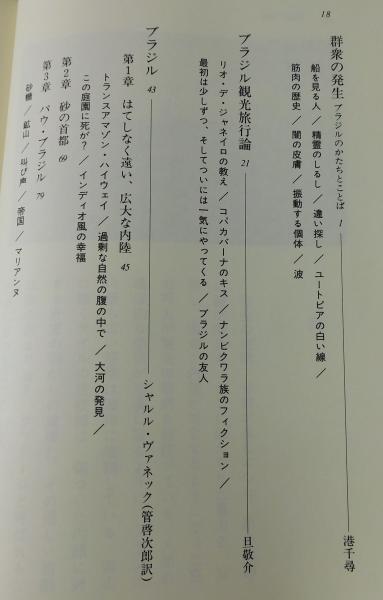 18
群衆の発生 ブラジルのかたちとことば 1 ――― 港千尋
船を見る人／精霊のしるし／違い探し／ユートピアの白い線／
筋肉の歴史／闇の皮膚／振動する個体／波
ブラジル観光旅行論 21 ――― 旦敬介
リオ・デ・ジャネイロの教え／コパカバーナのキス／ナンビクワラ族のフィクション／
最初は少しずつ、そしてついには一気にやってくる／ブラジルの友人
ブラジル 43 ――― シャルル・ヴァネック(管啓次郎訳)
第1章 はてしなく遠い、広大な内陸 45
トランスアマゾン・ハイウェイ／過剰な自然の腹の中で／大河の発見／
この庭園に死が？／インディオ風の幸福
第2章 砂の首都 69
第3章 パウ・ブラジル 79
砂糖／鉱山／叫び声／帝国／マリアンヌ